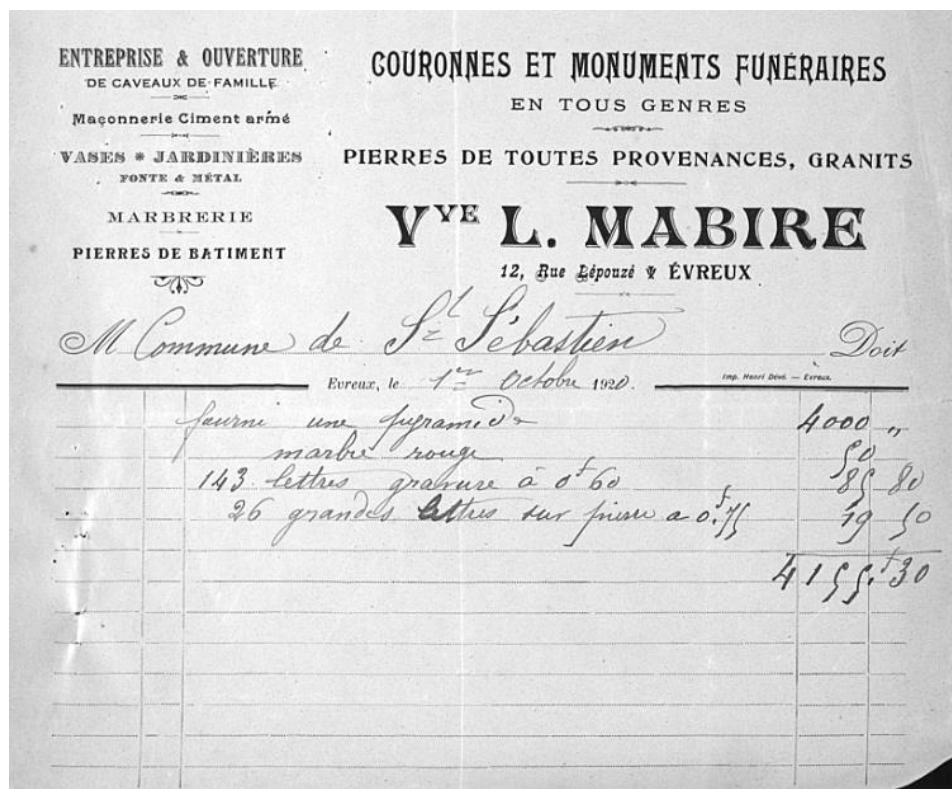 ENTREPRISE & OUVERTURE
DE CAVEAUX DE FAMILLE
Maçonnerie Ciment armé
VASES * JARDINIÈRES
FONTE & MÉTAL
MARBRERIE
PIERRES DE BATIMENT
COURONNES ET MONUMENTS FUNÉRAIRES
EN TOUS GENRES
PIERRES DE TOUTES PROVENANCES, GRANITS
VVE L. MABIRE
12, Rue Lépouzé ÉVREUX
M Commune de St Sébastien Doit
Evreux, le 1er Octobre 1920.
Imp. Henri Dévé. — Evreux.
fourni une pyramide 4000 "
marbre rouge 50
143 lettres gravure à 0f60 85 80
26 grandes lettres sur pierre a 0f.75 19 50
4155f.30